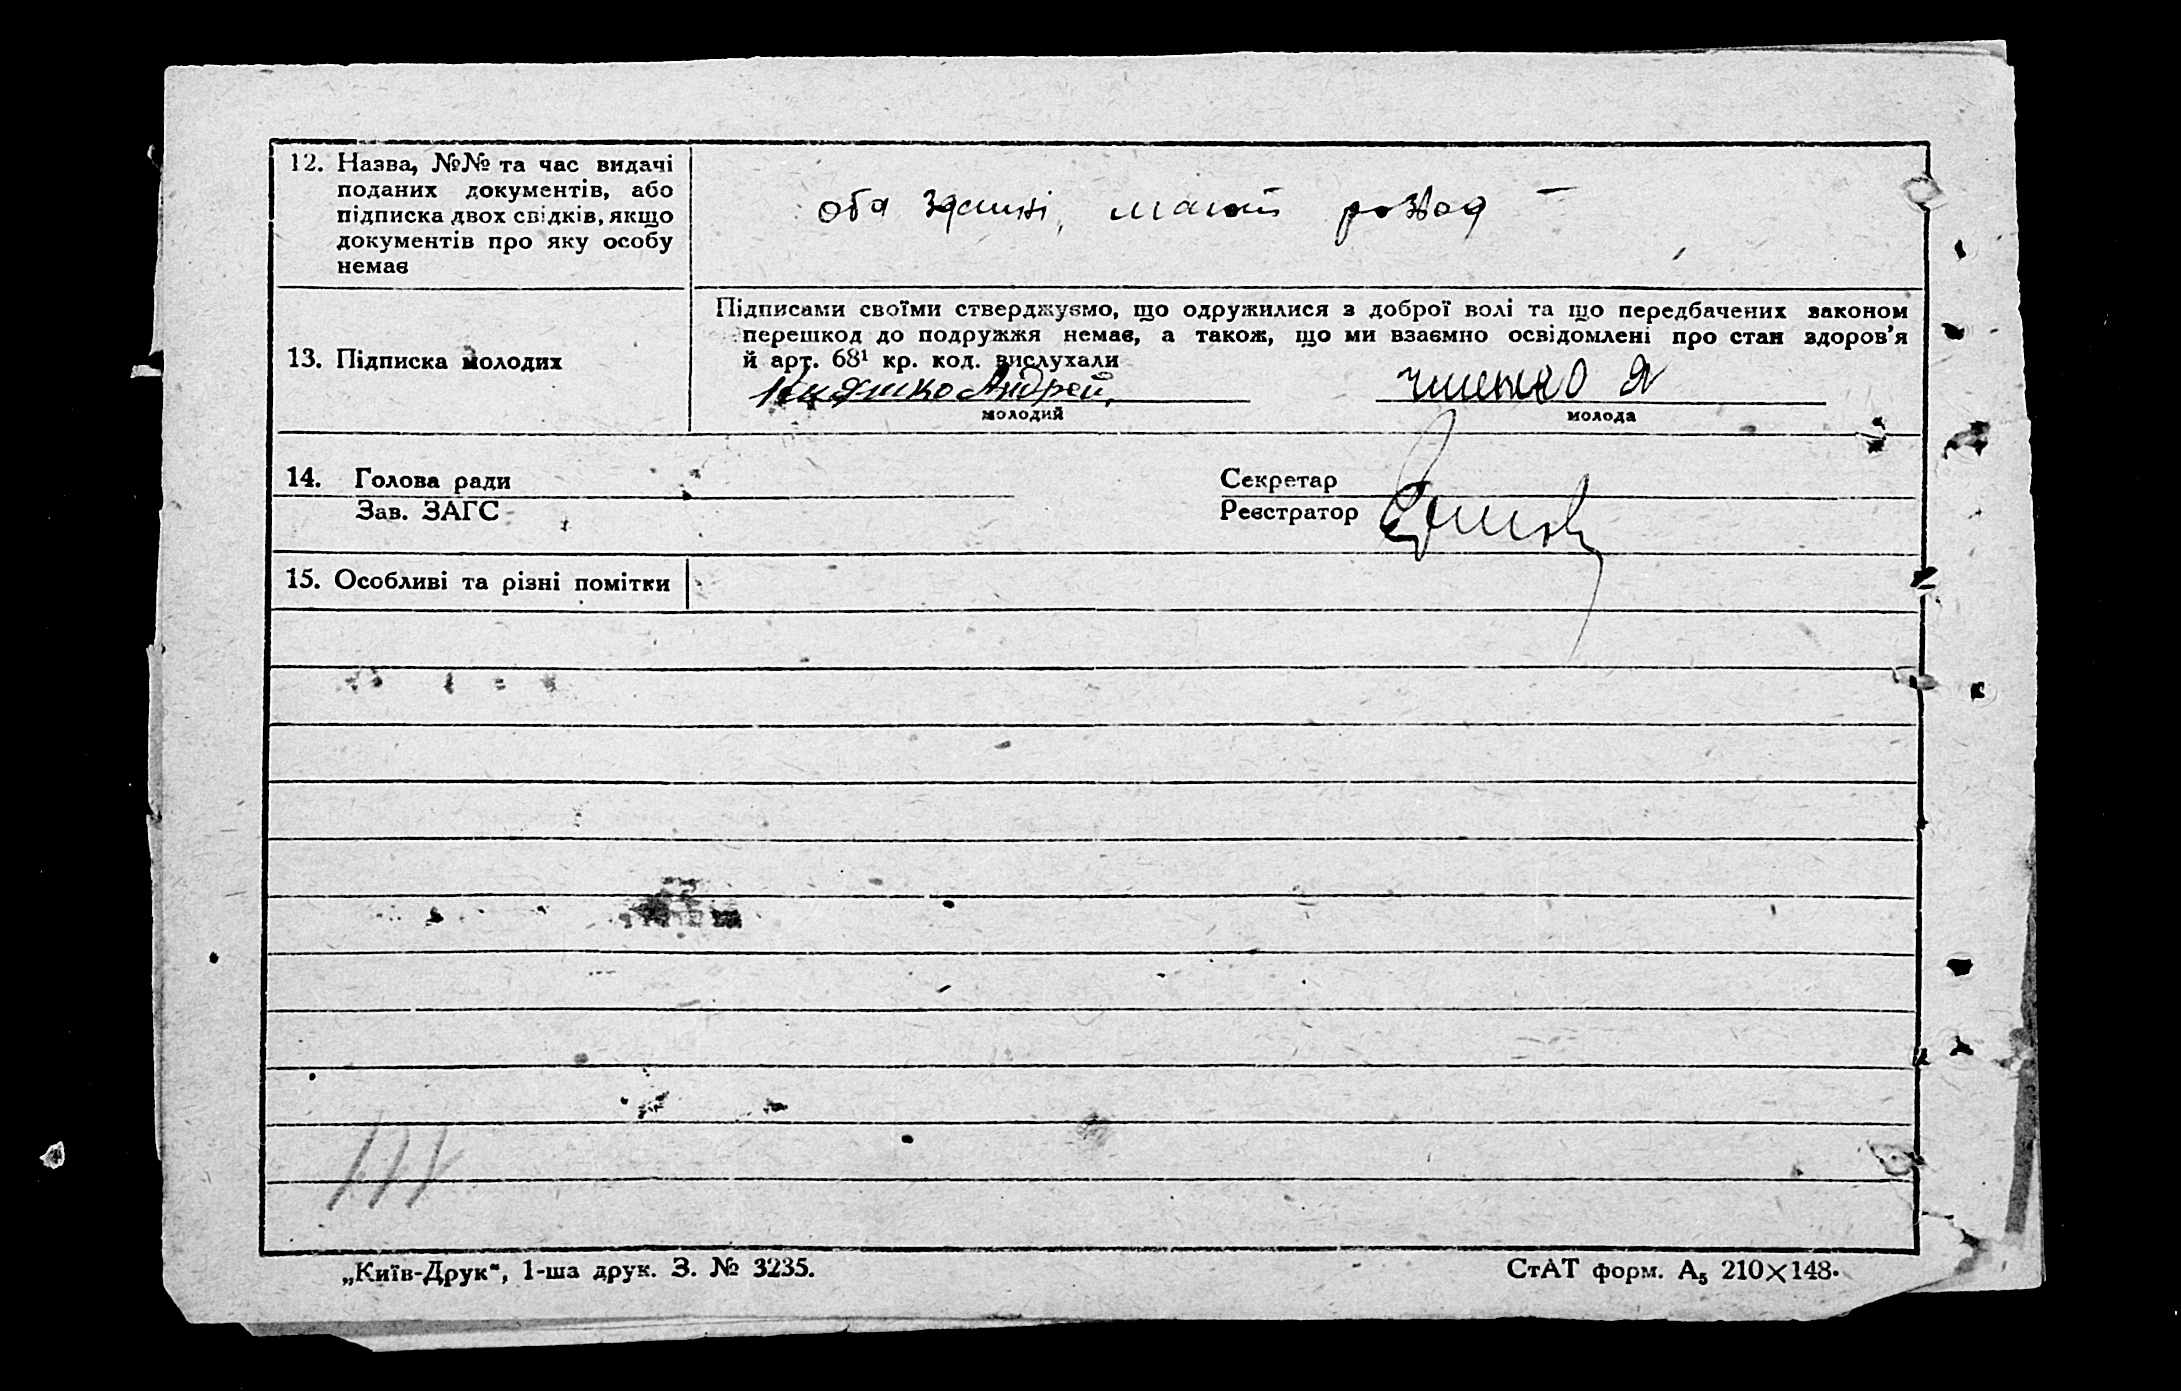 12. Назва, №№ та час видачі
поданих документів, або
підписка двох свідків, якщо
документів про яку особу
немає
оба здатні, мають розвод —
Підписами своїми стверджуємо, що одружилися з доброї волі та що передбачених законом
перешкод до подружжя немає, а також, що ми взаємно освідомлені про стан здоров’я
й арт. 68¹ кр. код. вислухали
13. Підписка молодих
Андрей
молодий
молода
14. Голова ради
Секретар
Зав. ЗАГС
Реєстратор
15. Особливі та різні помітки
„Київ-Друк“, 1-ша друк. З. № 3235.
СтАТ форм. А₅ 210×148.